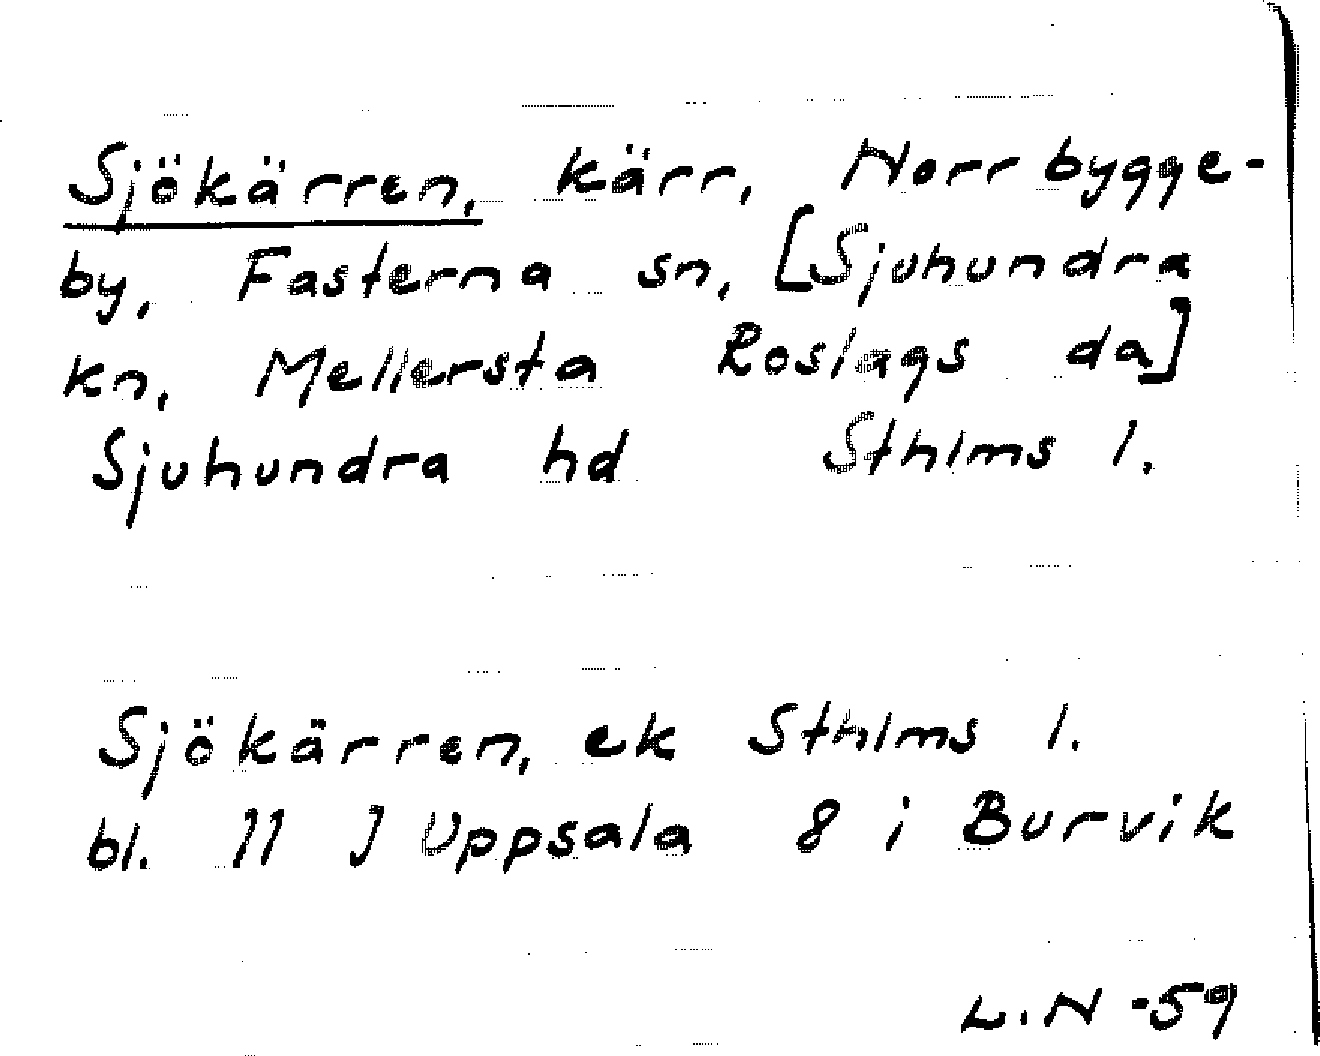 Sjökärren, kärr, Norrbygge-
by, Fasterna sn, [Sjuhundra
kn, Mellersta Roslags da]
Sjuhundra hd Sthlms l.
Sjökärren, ek Sthlms l.
bl. 11 J Uppsala 8 i Burvik
L.N -59